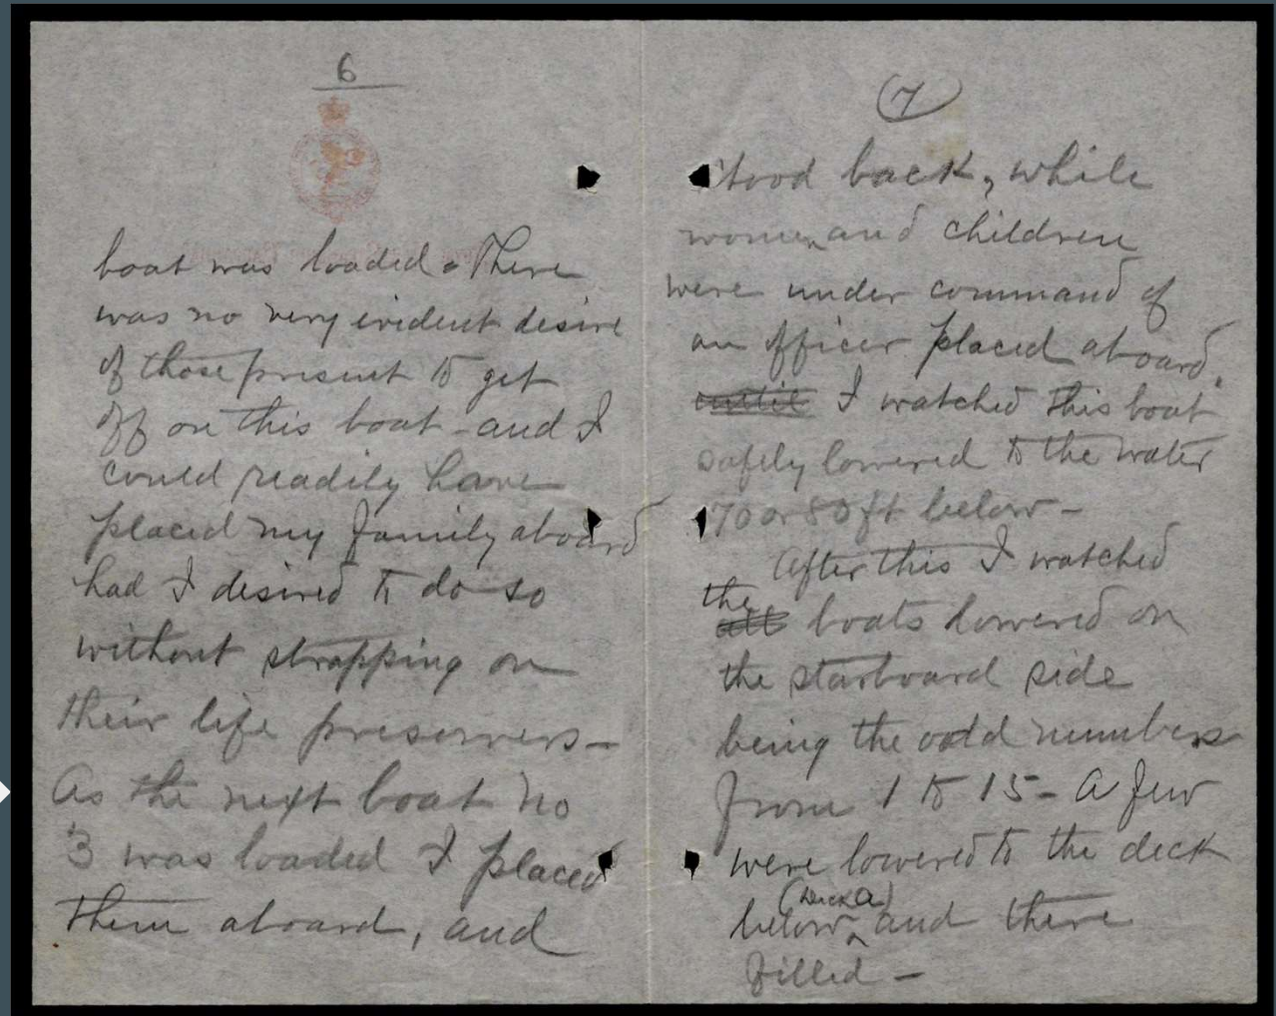 6
boat was loaded. There
was no very evident desire
of those present to get
off on this boat - and I
could readily have
placed my family aboard
had I desired to do so
without strapping on
their life preservers -
As the next boat No
3 was loaded I placed
them aboard, and
(7)
stood back, while
women and children
were under command of
an officer placed aboard.
until I watched this boat
safely lowered to the water
70 or 80 ft below -
After this I watched
the
all boats lowered on
the starboard side
being the odd numbers
from 1 to 15 - A few
were lowered to the deck
(Deck A)
below and there
filled -